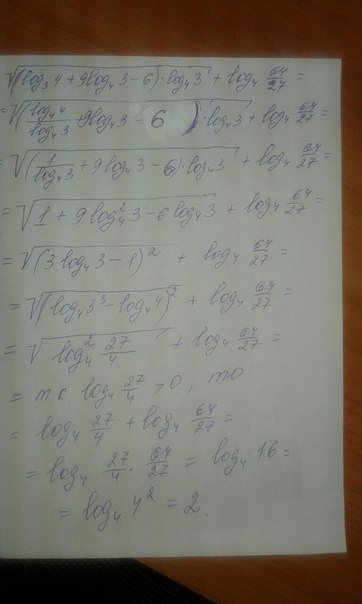 √((log₃4 + 9log₄3 − 6)·log₄3) + log₄ 64/27 =
= √((log₄4/log₄3 + 9log₄3 − 6)·log₄3) + log₄ 64/27 =
= √((1/log₄3 + 9log₄3 − 6)·log₄3) + log₄ 64/27 =
= √(1 + 9log₄²3 − 6log₄3) + log₄ 64/27 =
= √((3log₄3 − 1)²) + log₄ 64/27 =
= √((log₄3³ − log₄4)²) + log₄ 64/27 =
= √(log₄² 27/4) + log₄ 64/27 =
= т к log₄ 27/4 > 0, то
= log₄ 27/4 + log₄ 64/27 =
= log₄ 27/4 · 64/27 = log₄ 16 =
= log₄ 4² = 2.